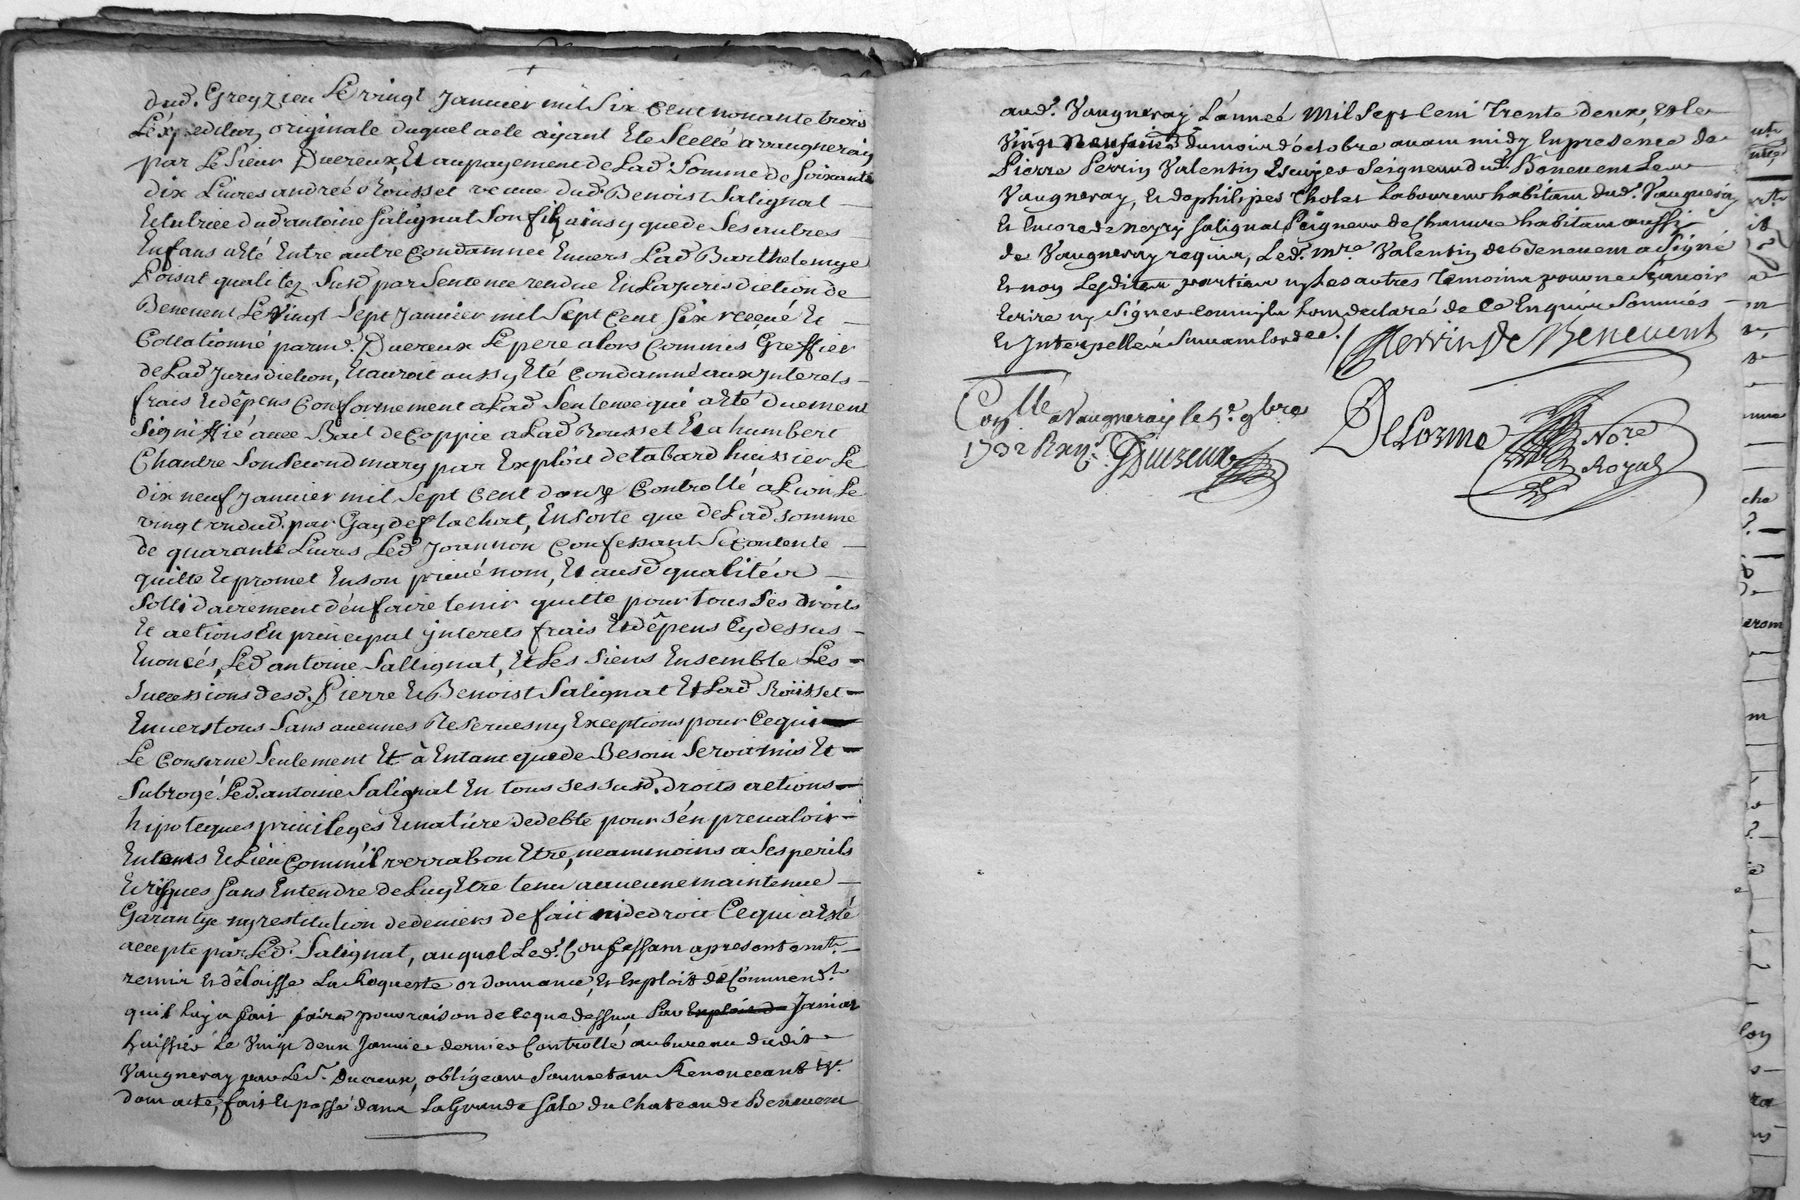 dud. Greyzieu Le vingt Janvier mil Six Cent nonante trois
L'éxpedition originale duquel acte aiyant Eté Scellé a vaugneray
par Le Sieur Ducreux, Et au payement de Lad. Somme de Soixante
dix Livres andrée Rousset veuve dud. Benoist Salignat
Et tutrice dud antoine Salignat Son fils ainsy que de Ses autres
Enfans a été Entre autre Condamnée Envers Lad Barthelemye
Poisat qualitez Susd par Sentence rendue En La jurisdiction de
Benevent Le Vingt Sept Janvier mil Sept Cent Six reçeue Et
Collationné par md. Ducreux Le pere alors Commis Greffier
de Lad Jurisdiction, Et auroit aussy Eté Condamné aux Interets
frais Et dêpens Conformement a Lad Sentence qui a Eté duement
Signiffié avec Bail de Coppie a Lad Rousset Et a humbert
Chantre Son Second mary par Exploit de tabard huissier Le
dix neuf Janvier mil Sept Cent douze Controllé a Lion Le
vingt un dud. par Gay de flachat, En Sorte que de Lad Somme
de quarante Livres Led Joannon Confessant Se Contente
quitte Et promet En son privé nom, Et ausd qualitéz
Sollidairement d'en faire tenir quitte pour tous Ses droits
Et actions En principal Interets frais Et dêpens Cy dessus
Enoncés, Led antoine Sallignat, Et Les Siens Ensemble Les
Successions desd. Pierre Et Benoist Salignat Et Lad Roüsset
Envers tous Sans aucunes Reserves ny Exceptions pour Ce qui
Le Conserne Seulement Et à Entant que de Besoin Seroit mis Et
Subrogé Led. antoine Salignat En tous ses susd. droits actions
hipoteques privileges Et natûre de debte pour s'en prevaloir
En tems Et Lieu Comm'il verra bon Etre, neammoins a Ses perils
Et risques Sans Entendre de Luy Etre tenu a aucune maintenue
Garantye ny restitution de deniers de fait ni de droit Ce qui a Eté
accepté par Led. Salignat, auquel Led. Confessant a presentemt.
remir et délaisse La Requeste ordonnance, Et Exploit de Commendt.
quil luy a fait faire pour raison de ce que dessus Par Exploit de Janiar
huissier Le Vingt deux Janvier dernier Controllé au bureau dudit
Vaugneray par Le Sr. Ducreux, obligeant Soumetant Renonceant &.
dont acte, fait Et passé dans La Grande Sale du Chateau de Benevent
aud. Vaugneray L'année Mil Sept Cent Trente deux, Et Le
Vingt du mois d'octobre avant midy En presence de
Pierre Perrin Valentin Escuyer Seigneur dud. Benevent Le
Vaugneray, Et de philipes Cholat Laboureur habitant dud. Vaugneray
Et Encore de Salignat habitant aussi
de Vaugneray requis, Led. Mre. Valentin de Benevent a Signé
Et non Lesdites parties ny Les autres Temoins pour ne Scavoir
Ecrire ny Signer comm'ils L'ont declaré de Ce Enquis Sommés
Et Interpellés Suivant L'ordce.
Perrin De Benevent
Conlle a Vaugneray le 5e. 9bre
1732 Ducreux
DeLorme Nore. Royal